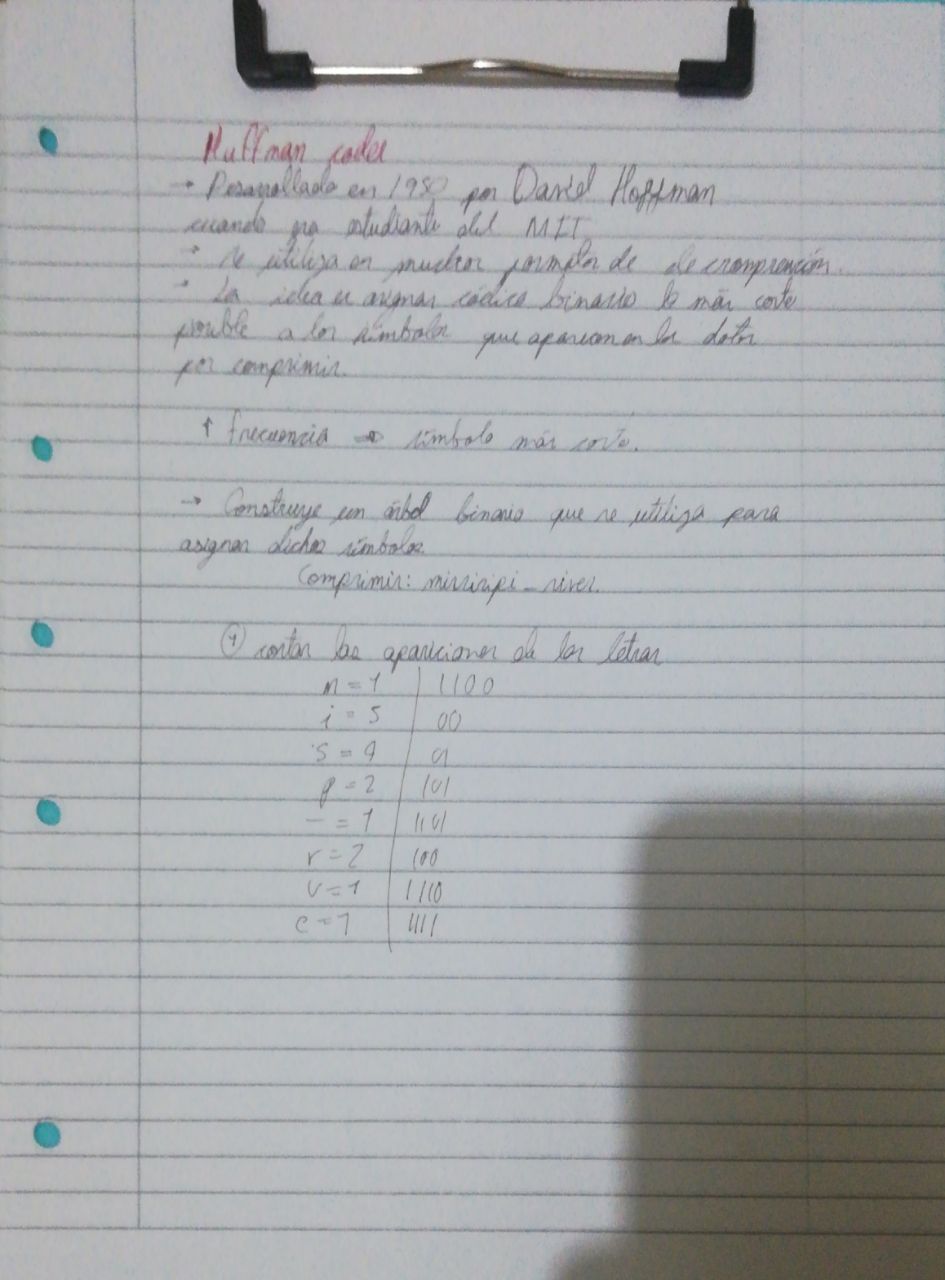 Huffman codes
→ Desarrollado en 1950 por David Hoffman
cuando era estudiante del MIT
→ se utiliza en muchos formatos de de compresión.
→ La idea es asignar códico binario lo más corto
posible a los símbolos que aparecen en los datos
por comprimir.
↑ frecuencia ⇒ símbolo más corto.
→ Construye un árbol binario que se utiliza para
asignar dichos símbolos.
Comprimir: missisipi_river.
① contar las apariciones de los letras
m = 1 | 1100
i = 5 | 00
s = 4 | 01
p = 2 | 101
_ = 1 | 1101
r = 2 | 100
v = 1 | 1110
e = 1 | 1111